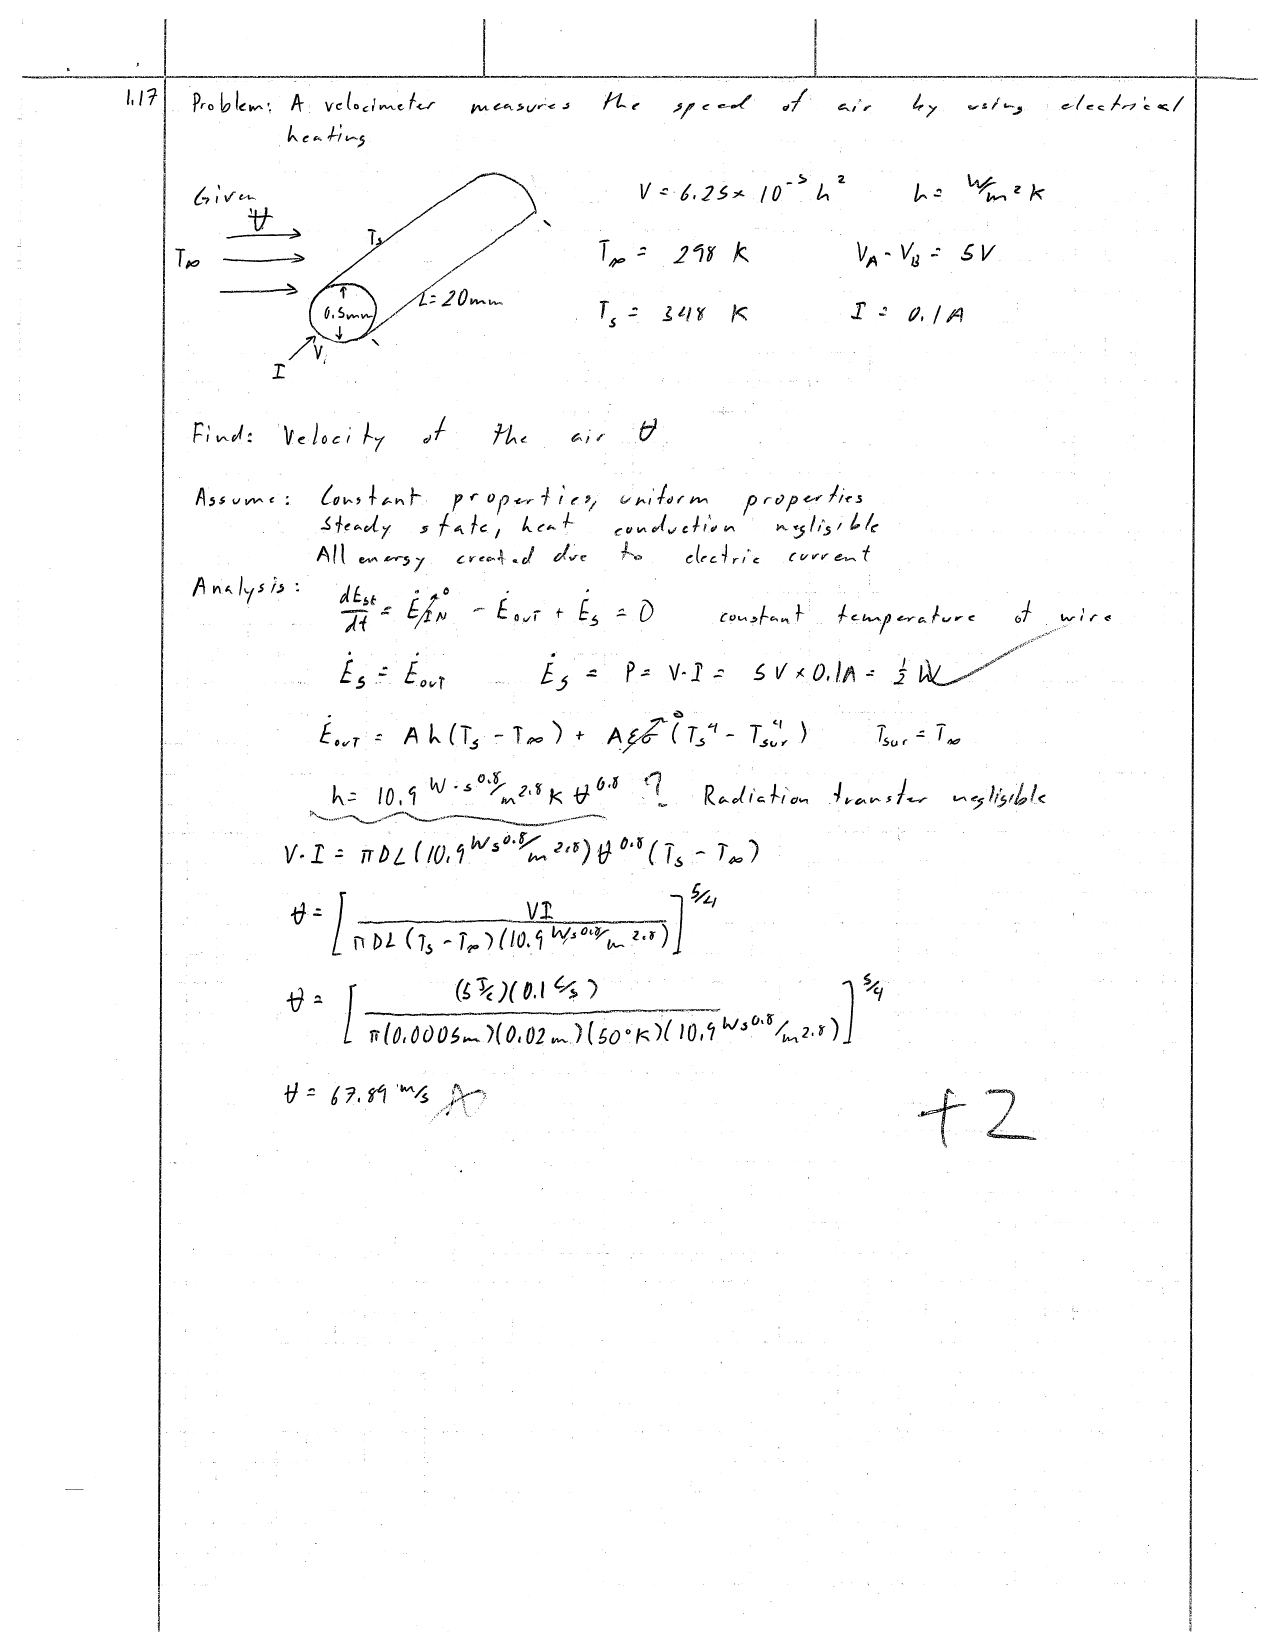 1.17 Problem: A velocimeter measures the speed of air by using electrical
heating
Given
V = 6.25 × 10⁻⁵ h² h = W/m²K
V
T∞
Ts
T∞ = 298 K V_A - V_B = 5V
0.5mm L = 20mm
Ts = 348 K I = 0.1A
V,
I
Find: Velocity of the air V
Assume: Constant properties, uniform properties
Steady state, heat conduction negligible
All energy created due to electric current
Analysis: dEst/dt = Ė_IN⁰ - Ė_OUT + Ėg = 0 constant temperature of wire
Ėg = Ė_OUT Ėg = P = V·I = 5V × 0.1A = ½ W
Ė_OUT = Ah(Ts - T∞) + Aεσ⁰(Ts⁴ - Tsur⁴) Tsur = T∞
h = 10.9 W·s^0.8/m^2.8 K V^0.8 ? Radiation transfer negligible
V·I = πDL(10.9 Ws^0.8/m^2.8) V^0.8 (Ts - T∞)
V = [VI / πDL(Ts - T∞)(10.9 Ws^0.8/m^2.8)]^5/4
V = [(5 J/C)(0.1 C/s) / π(0.0005m)(0.02m)(50°K)(10.9 Ws^0.8/m^2.8)]^5/4
V = 67.89 m/s
+2